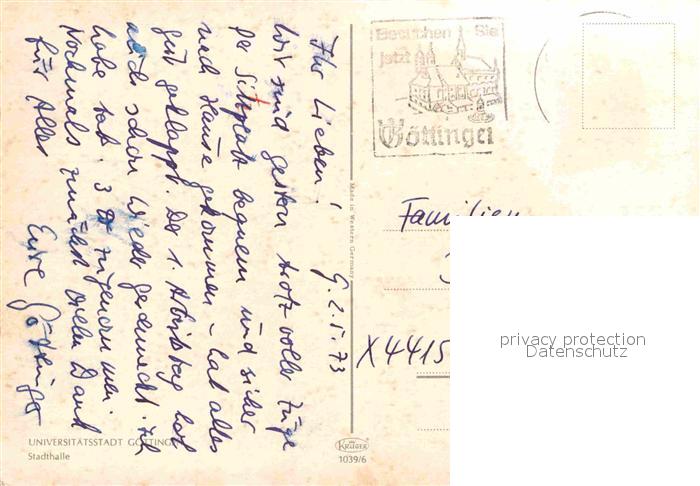 G. 2.5.73
Ihr Lieben!
wir sind gestern trotz voller Züge
per Sitzplatz bequem und sicher
nach Hause gekommen – hat alles
gut geklappt. Der 1. Arbeitstag hat
auch schon wieder geschmeckt. Ich
habe tat. 3 zugenommen.
Nochmals zunächst vielen Dank
für Alles
Eure Göttinger
UNIVERSITÄTSSTADT GÖTTINGEN
Stadthalle
Made in Western Germany
KRÜGER
1039/6
Besuchen Sie
jetzt
Göttingen
Familien
X4415
privacy protection
Datenschutz